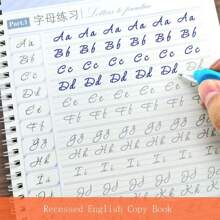 Part.1 字母练习 Letters to practise
Aa Aa Aa Aa Aa Aa
Bb Bb Bb Bb Bb Bb
Cc Cc Cc Cc Cc Cc
Dd Dd Dd Dd Dd Dd
Ee Ee Ee Ee Ee Ee
Ff Ff Ff Ff Ff Ff
Gg Gg Gg Gg Gg Gg
Hh Hh Hh Hh Hh Hh
Ii Ii Ii Ii Ii Ii
Jj Jj Jj Jj Jj Jj
Kk Kk Kk Kk Kk Kk
Recessed English Copy Book